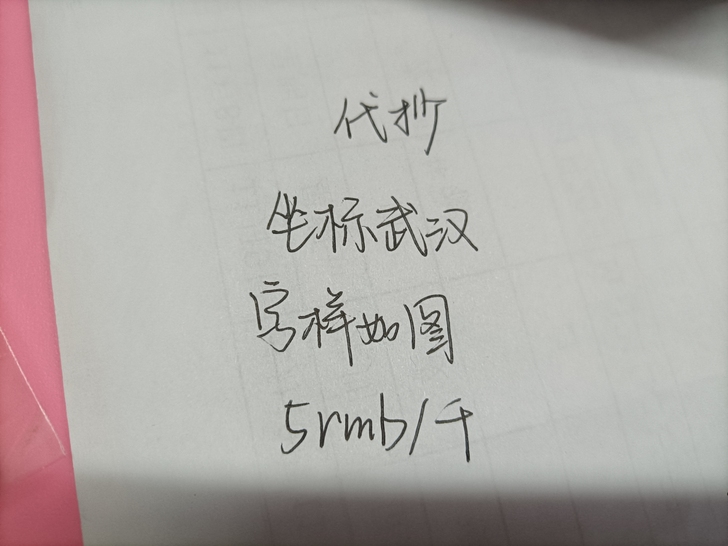 代抄
坐标武汉
字样如图
5rmb/千